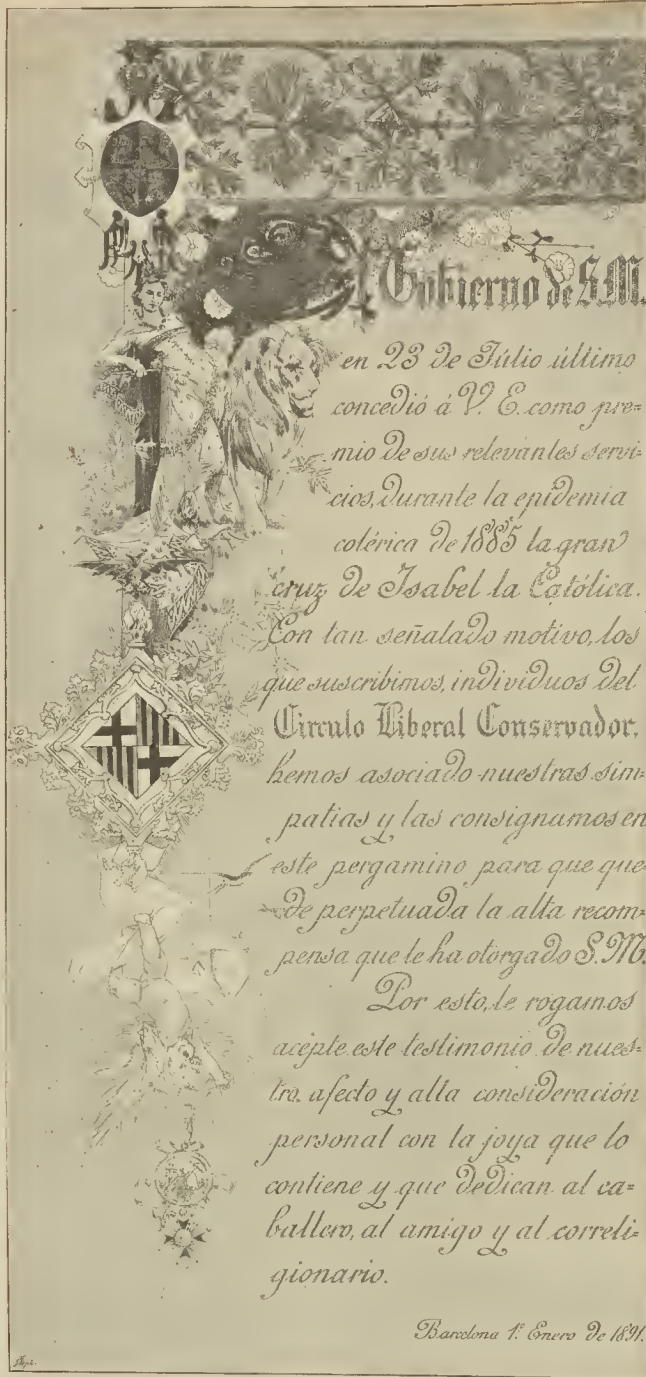 El Gobierno de S.M.
en 23 de Júlio último
concedió á V. E. como pre=
mio de sus relevantes servi=
cios, durante la epidemia
colérica de 1885 la gran
cruz de Isabel la Católica.
Con tan señalado motivo, los
que suscribimos, individuos del
Circulo Liberal Conservador,
hemos asociado nuestras sim=
patias y las consignamos en
este pergamino para que que=
de perpetuada la alta recom=
pensa que le ha otorgado S.M.
Por esto, le rogamos
acépte este testimonio de nues=
tro afecto y alta consideración
personal con la joya que lo
contiene y que dedican al ca=
ballero, al amigo y al correli=
gionario.
Barcelona 1º Enero de 1891.